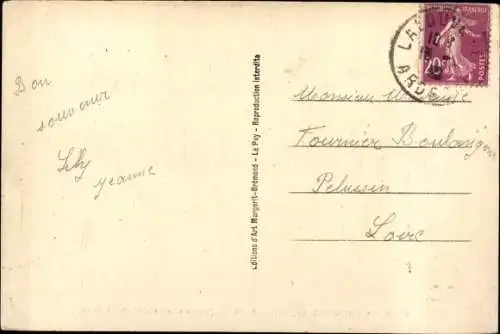 Bon
souvenir
Lily
Jeanne
Editions d'Art Margerit-Brémond - Le Puy - Reproduction interdite
20c
POSTES
ARDÈ
Monsieur Madame
Fournier Boulanger
Pelussin
Loire